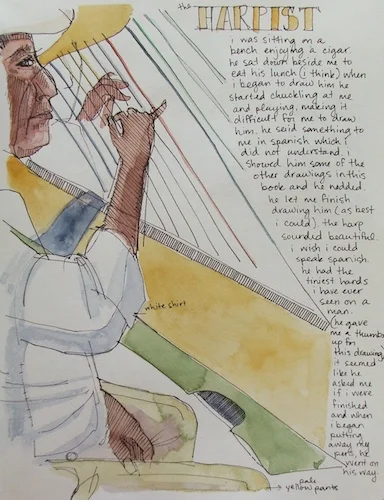 the HARPIST
i was sitting on a
bench enjoying a cigar.
he sat down beside me to
eat his lunch (i think) when
i began to draw him he
started chuckling at me
and playing, making it
difficult for me to draw
him. he said something to
me in spanish which i
did not understand. i
showed him some of the
other drawings in this
book and he nodded.
he let me finish
drawing him (as best
i could) the harp
sounded beautiful.
i wish i could
speak spanish.
he had the
tiniest hands
i have ever
seen on a
man.
(he gave
me a thumbs
up for
this drawing)
it seemed
like he
asked me
if i were
finished
and when
i began
putting
away my
pens, he
went on
his way.
white shirt
pale
yellow pants